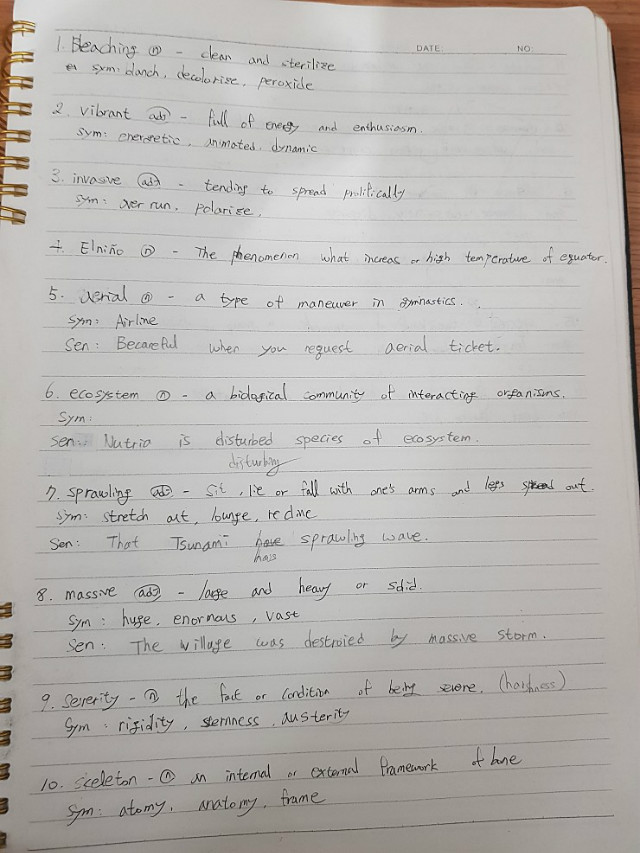 DATE NO.
1. Bleaching (n) - clean and sterilize
sym: blanch, decolorise, peroxide
2. vibrant (adj) - full of energy and enthusiasm.
sym: energetic, animated, dynamic
3. invasive (adj) - tending to spread prolifically
sym: over run, polarise,
4. Elniño (n) - The phenomenon what increas or high temperature of equator.
5. aerial (n) - a type of maneuver in gymnastics.
Sym: Airline
Sen: Becareful when you request aerial ticket.
6. ecosystem (n) - a biological community of interacting organisims.
Sym:
Sen: Nutria is disturbed species of ecosystem.
disturbing
7. sprawling (adj) - Sit, lie or fall with one's arms and legs spread out.
sym: stretch out, lounge, recline
Sen: That Tsunami have sprawling wave.
has
8. massive (adj) - large and heavy or solid.
Sym: huge, enormous, vast
Sen: The village was destroied by massive storm.
9. Severity - (n) the fact or condition of being severe. (harshness)
Sym: rigidity, sternness, austerity
10. skeleton - (n) an internal or external framework of bone
Sym: atomy, anatomy, frame